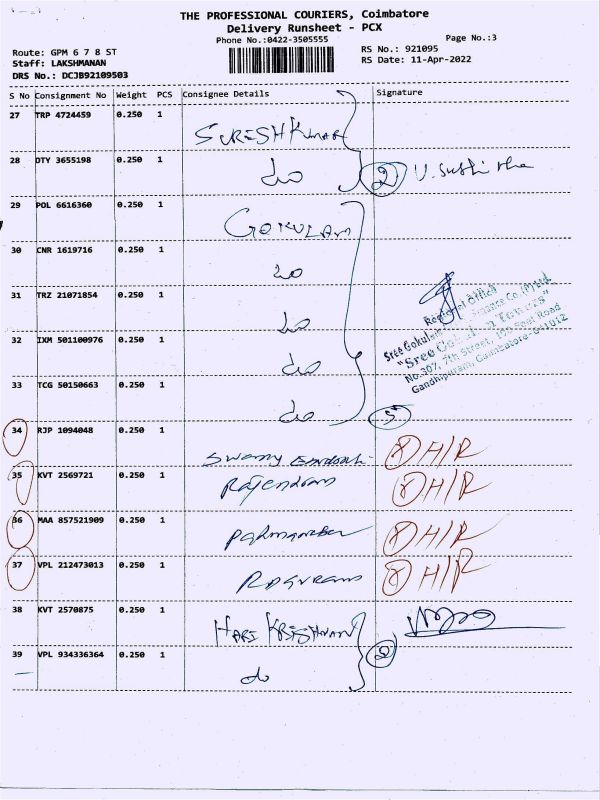 THE PROFESSIONAL COURIERS, Coimbatore
Delivery Runsheet - PCX
Phone No.:0422-3505555
Page No.:3
Route: GPM 6 7 8 ST
RS No.: 921095
Staff: LAKSHMANAN
RS Date: 11-Apr-2022
DRS No.: DCJB92109503
S No Consignment No Weight PCS Consignee Details Signature
27 TRP 4724459 0.250 1
SURESH Kumar
28 OTY 3655198 0.250 1
do
2
29 POL 6616360 0.250 1
GOKULAM
30 CNR 1619716 0.250 1
do
31 TRZ 21071854 0.250 1
do
Regional Office
Sree Gokulam Finance Co.(P) Ltd.
32 IXM 501100976 0.250 1
do
No.307, 7th Street, 100 Feet Road
Gandhipuram, Coimbatore-641012
33 TCG 50150663 0.250 1
do
5
34 RJP 1094048 0.250 1
Swamy
H/R
35 KVT 2569721 0.250 1
Rajendran
H/R
36 MAA 857521909 0.250 1
H/R
37 VPL 212473013 0.250 1
H/R
38 KVT 2570875 0.250 1
HARI KRISHNAN
2
39 VPL 934336364 0.250 1
do